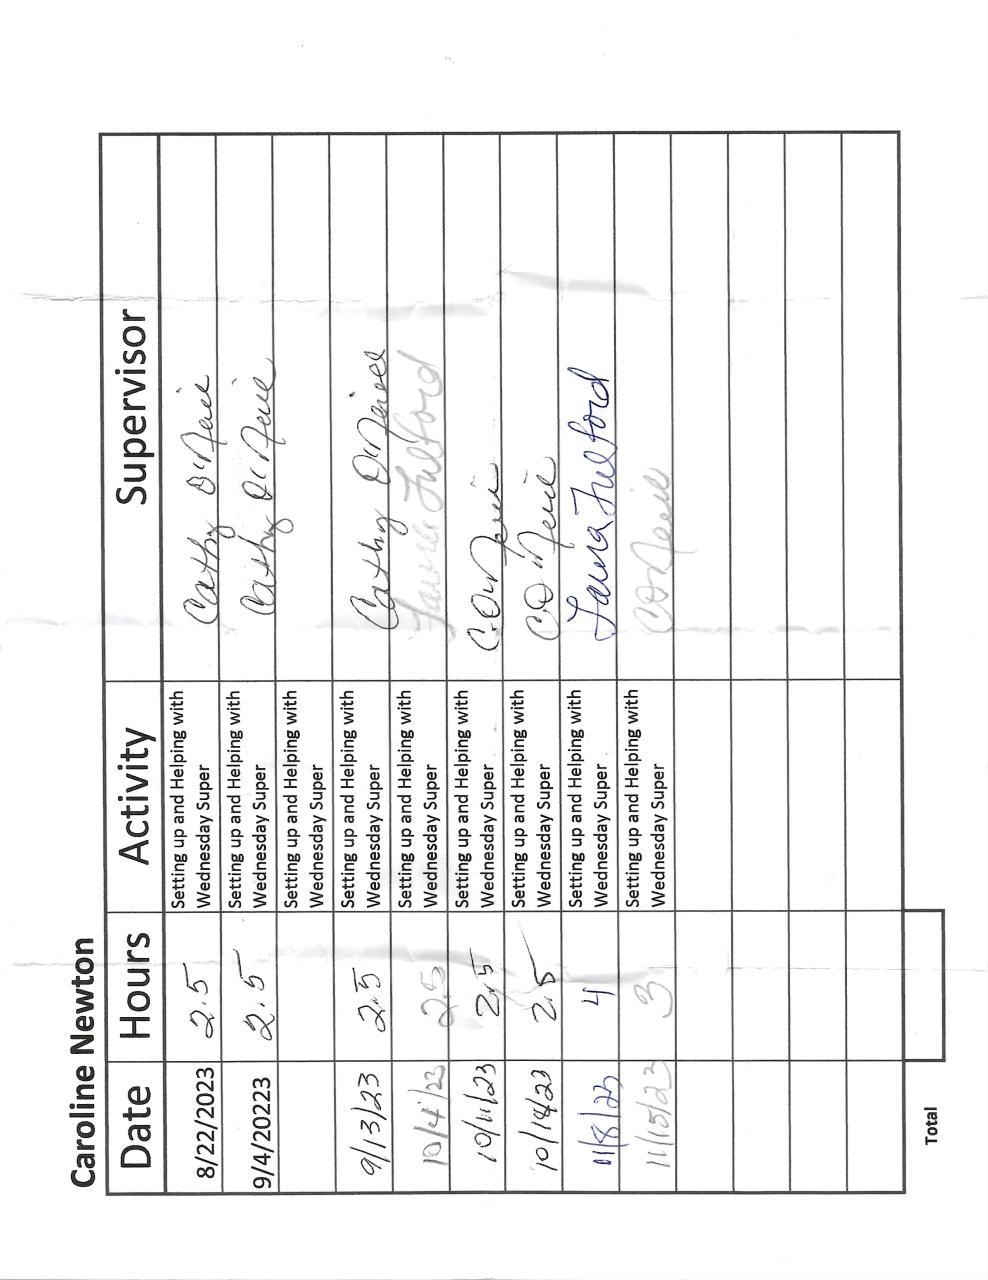 Caroline Newton
Date Hours Activity Supervisor
8/22/2023 2.5 Setting up and Helping with Wednesday Super Cathy O'Neill
9/4/20223 2.5 Setting up and Helping with Wednesday Super Cathy O'Neill
Setting up and Helping with Wednesday Super
9/13/23 2.5 Setting up and Helping with Wednesday Super Cathy O'Neill
10/4/23 2.5 Setting up and Helping with Wednesday Super Laura Fulford
10/11/23 2.5 Setting up and Helping with Wednesday Super C. O'Neill
10/18/23 2.5 Setting up and Helping with Wednesday Super C O'Neill
11/8/23 4 Setting up and Helping with Wednesday Super Laura Fulford
11/15/23 3 Setting up and Helping with Wednesday Super C O'Neill
Total